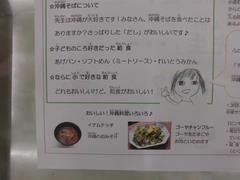 ☆沖縄そばについて
先生は沖縄が大好きです！みなさん、沖縄そばを食べたことは
ありますか？さっぱりした「だし」がおいしいです♪
☆子どものころ好きだった給食
あげパン・ソフトめん（ミートソース）・れいとうみかん
☆ならに小で好きな給食
どれもおいしいけど、和食がおいしい！
おいしい！沖縄料理いろいろ♪
イナムドゥチ
沖縄のおみそ汁
ゴーヤチャンプルー
ゴーヤをたまごや
お肉といためます